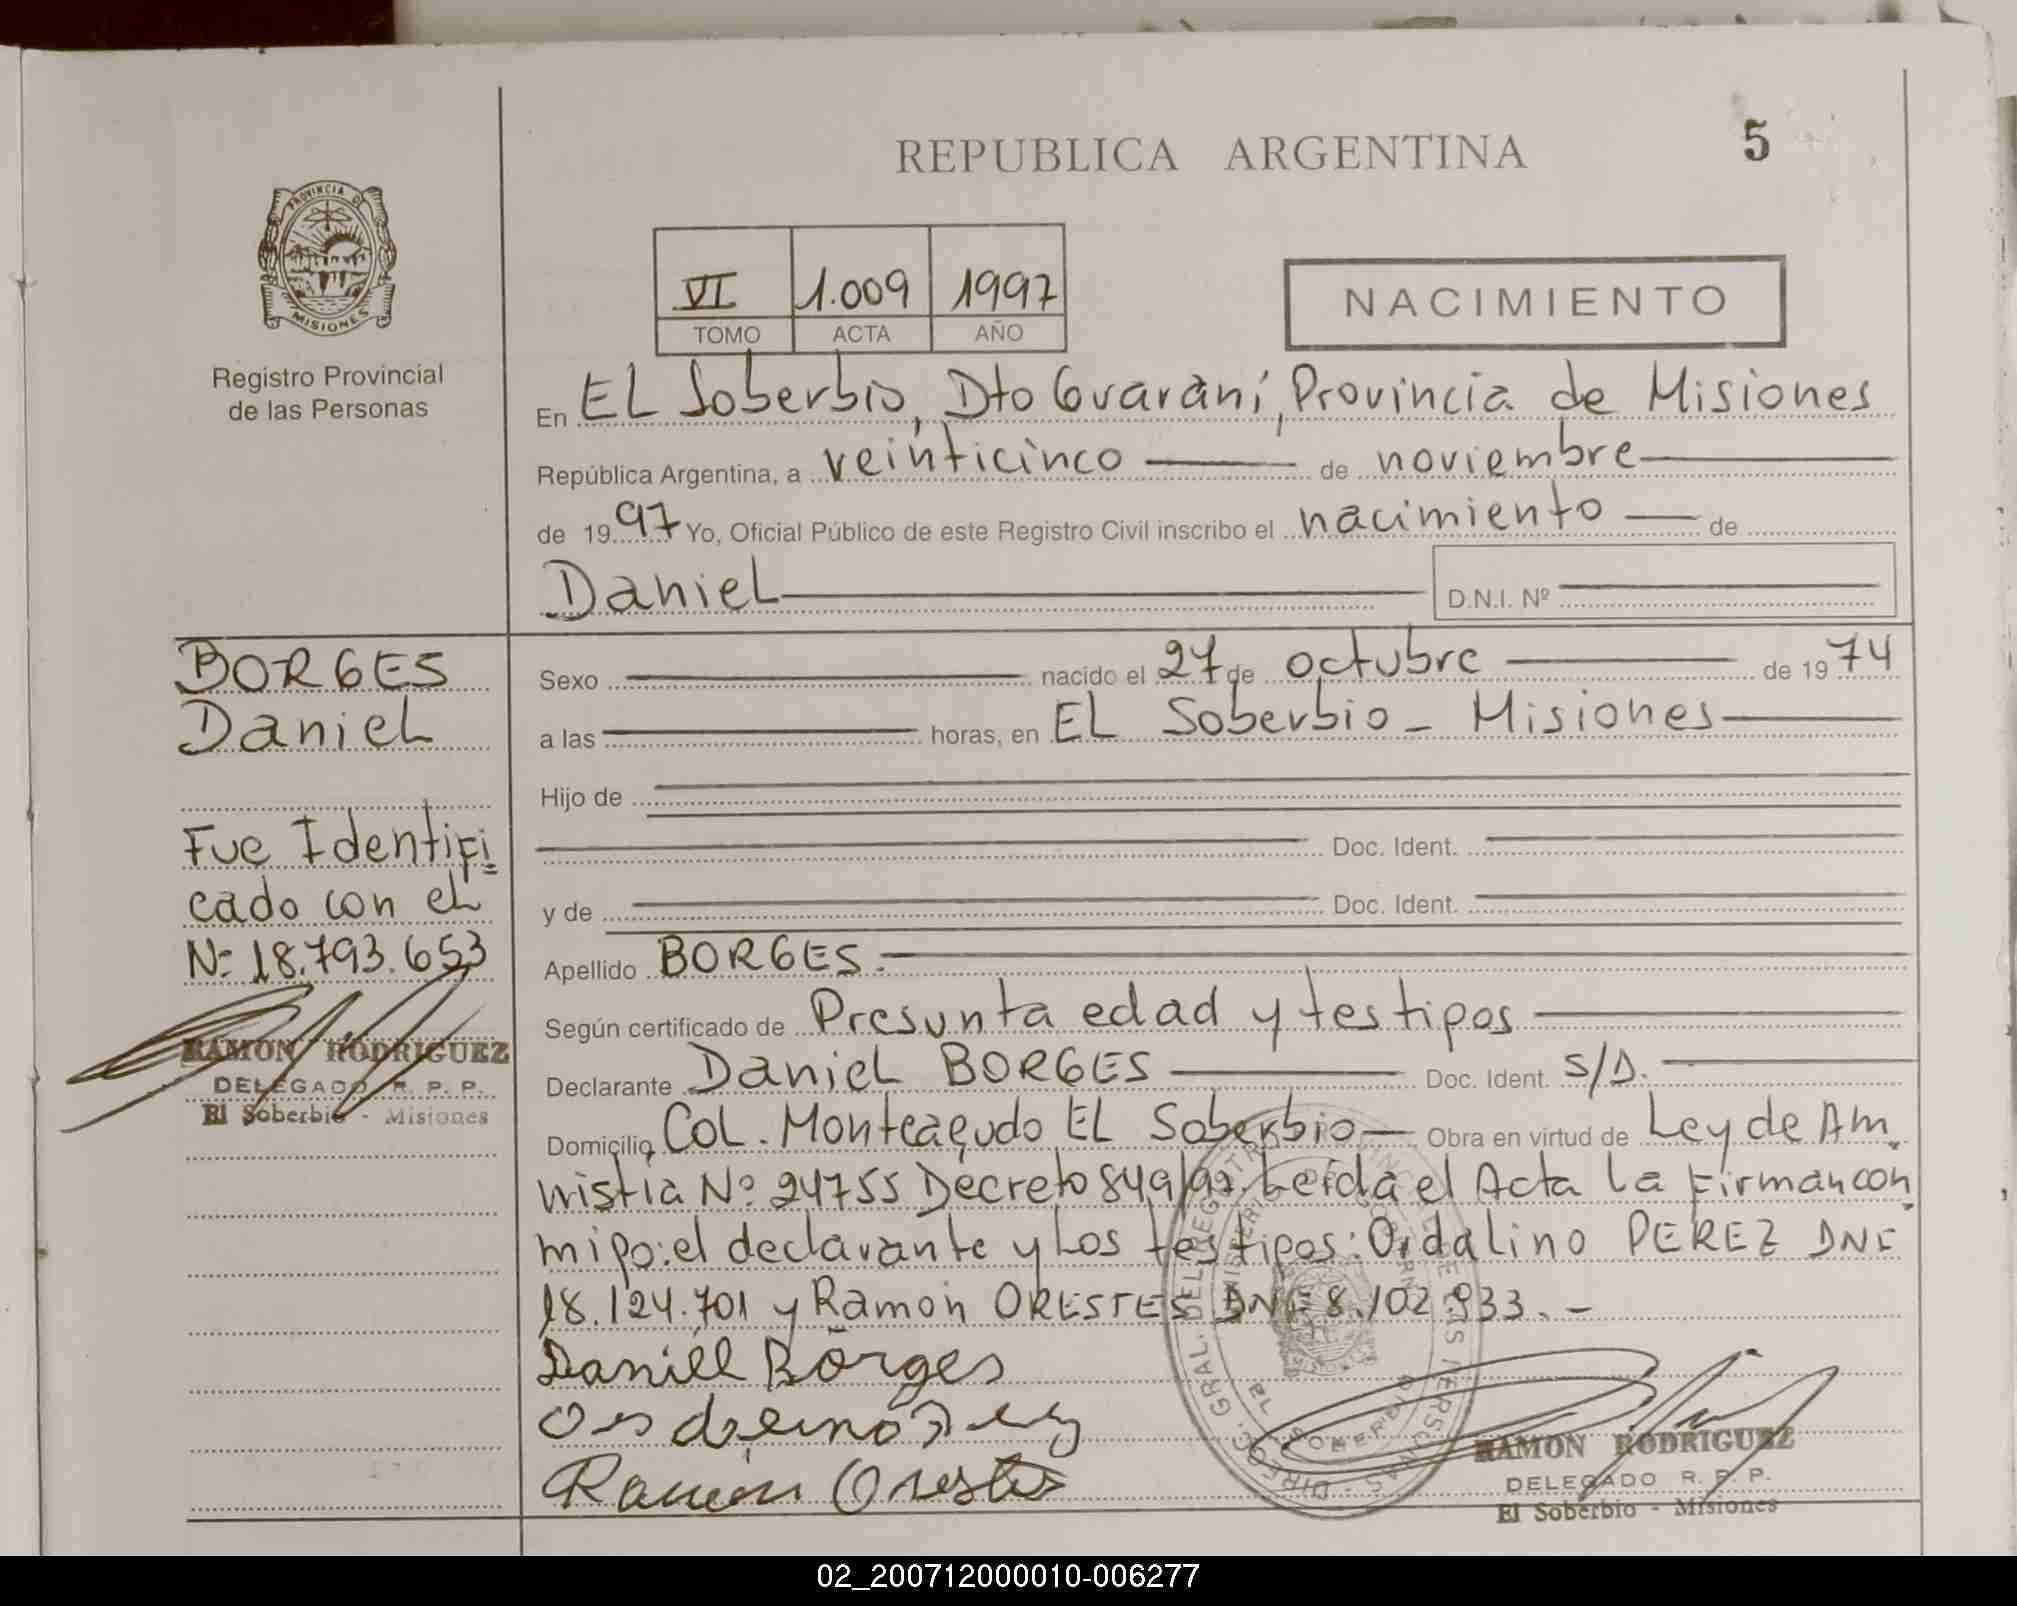 REPUBLICA ARGENTINA
5
PROVINCIA DE
MISIONES
Registro Provincial
de las Personas
VI 1.009 1997
TOMO ACTA AÑO
NACIMIENTO
En EL Soberbio, Dto Guaraní, Provincia de Misiones
República Argentina, a veinticinco de noviembre
de 1997 Yo, Oficial Público de este Registro Civil inscribo el nacimiento de
Daniel D.N.I. Nº
BORGES
Daniel
Fue Identifi
cado con el
Nº 18.793.653
RAMON RODRIGUEZ
DELEGADO R. P. P.
El Soberbio - Misiones
Sexo nacido el 27 de octubre de 1974
a las horas, en EL Soberbio - Misiones
Hijo de
Doc. Ident.
y de Doc. Ident.
Apellido BORGES.
Según certificado de Presunta edad y testigos
Declarante Daniel BORGES Doc. Ident. S/D.
Domicilio Col. Monteagudo EL Soberbio Obra en virtud de Ley de Am
nistia Nº 24755 Decreto 849/97. Leída el Acta la Firman con
migo: el declarante y Los testigos: Ordalino PEREZ DNI
18.124.701 y Ramon ORESTES DNI 8.102.933. -
Daniel Borges
Ramón Orestes
RAMON RODRIGUEZ
DELEGADO R. P. P.
El Soberbio - Misiones
02_200712000010-006277